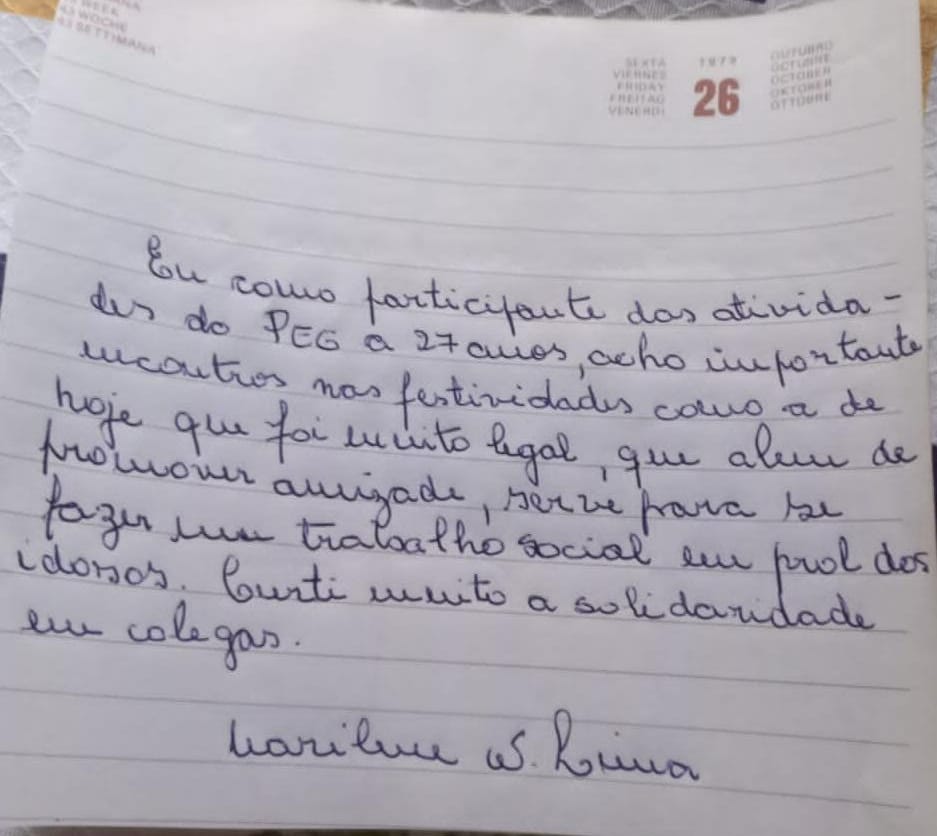 WEEK
WOCHE
SETTIMANA
SEXTA
VIERNES
FRIDAY
FREITAG
VENERDI
1979
26
OUTUBRO
OCTUBRE
OCTOBER
OKTOBER
OTTOBRE
Eu como participante das ativida-
des do PEG a 27 anos, acho importante
encontros nas festividades como a de
hoje que foi muito legal, que alem de
promover amizade, serve para se
fazer um trabalho social em prol dos
idosos. Curti muito a solidaridade
em colegas.
Marilene W. Lima